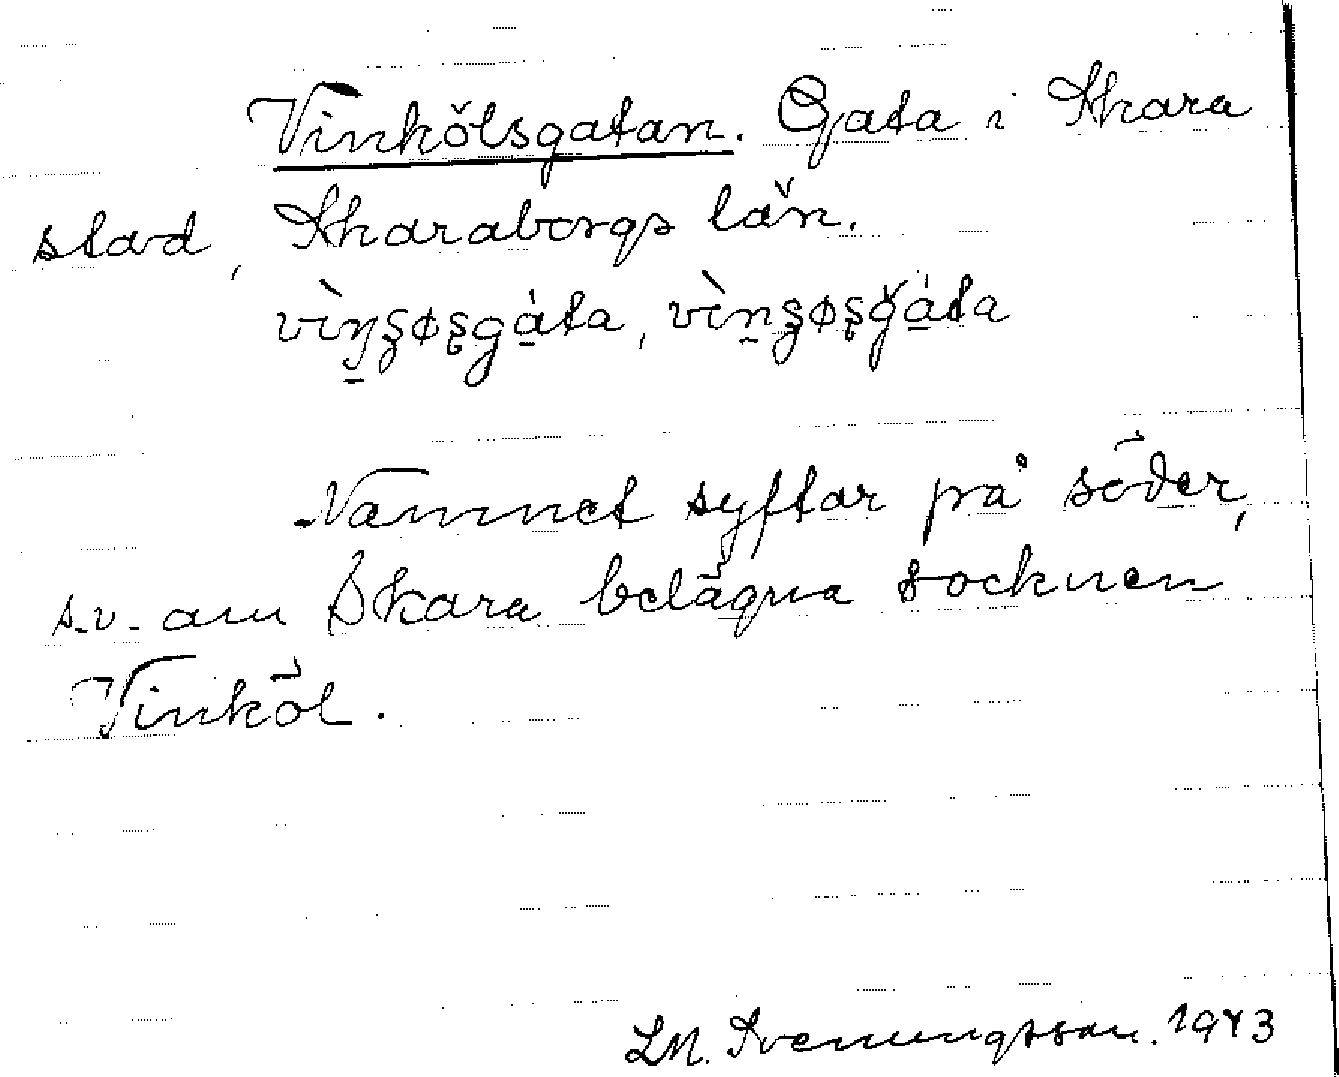 Vinkölsgatan. Gata i Skara
stad, Skaraborgs län.
Namnet syftar på söder,
s.v. om Skara belägna socknen
Vinköl.
L.M. Svenungsson. 1943